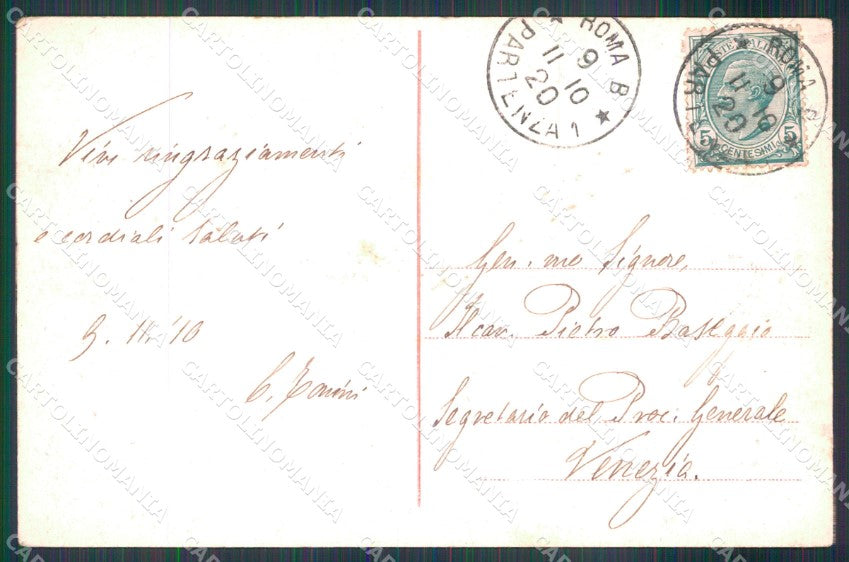 Vivi ringraziamenti
e cordiali saluti
9. 11. '10
C. Tonini
ROMA B
9
11 10
20
PARTENZA 1
POSTE ITALIANE
5 CENTESIMI 5
ROMA B
9
11 10
20
PARTENZA
Gen.mo Signore,
Il cav. Pietro Baseggio
Segretario del Proc. Generale
Venezia.
CARTOLINOMANIA